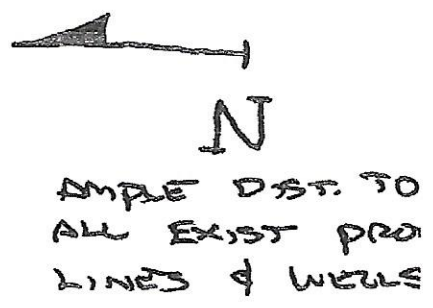 N
AMPLE DIST. TO
ALL EXIST PRO
LINES & WELLS